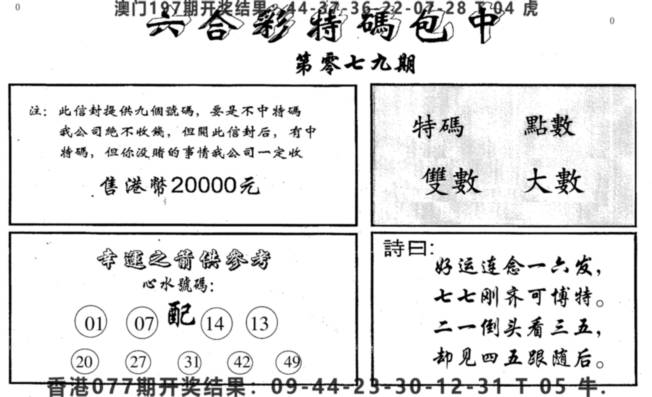 0
澳门197期开奖结果：44-37-36-22-07-28 T 04 虎
0
六合彩特碼包中
第零七九期
注：此信封提供九個號碼，要是不中特碼
我公司絶不收錢，但開此信封后，有中
特碼，但你没賭的事情我公司一定收
售港幣20000元
特碼 點數
雙數 大數
幸運之箭供參考
心水號碼：
01 07 配 14 13
20 27 31 42 49
詩曰：
好运连念一六发，
七七刚齐可博特。
二一倒头看三五，
却见四五跟随后。
香港077期开奖结果：09-44-23-30-12-31 T 05 牛.